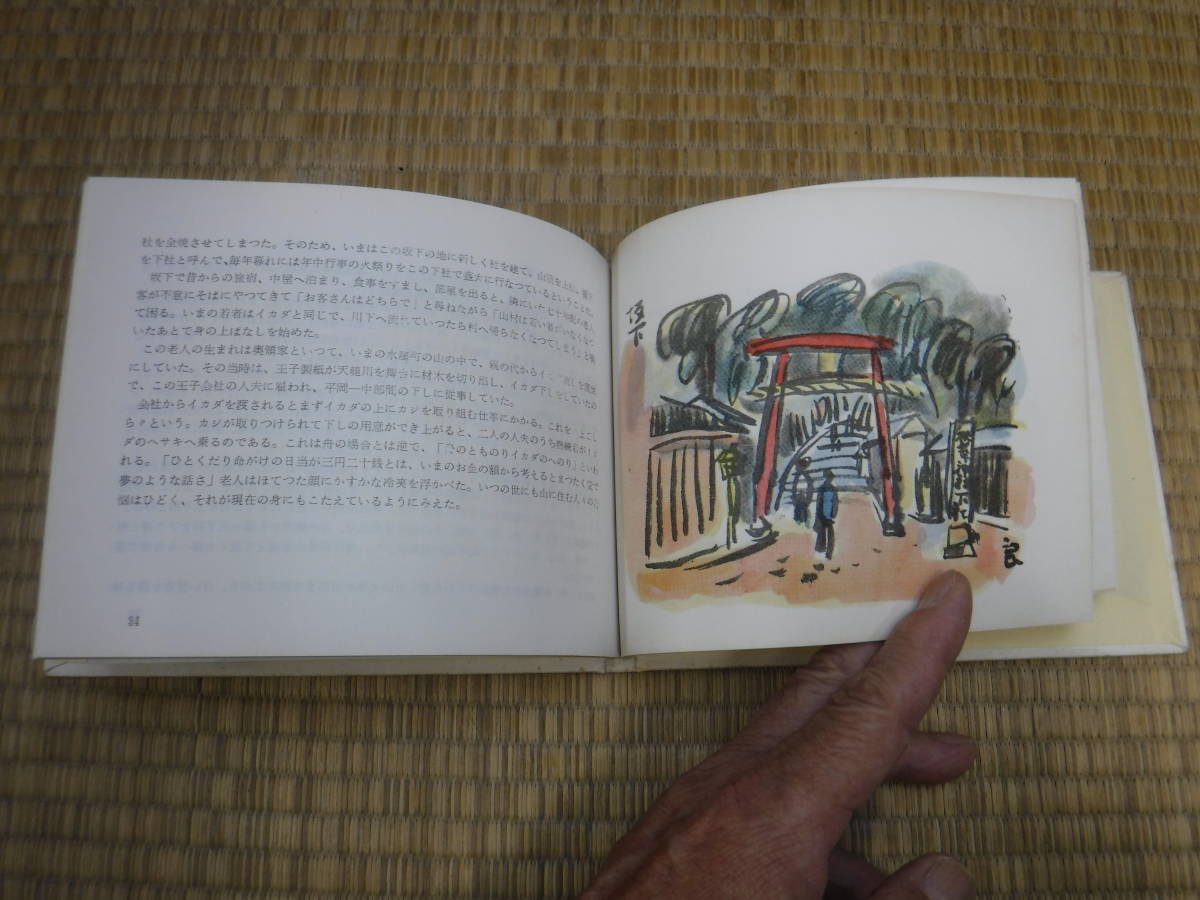 社を全焼させてしまつた。そのため、いまはこの坂下の地に新しく社を建て、山頂を上社、
を下社と呼んで、毎年暮れには年中行事の火祭りをこの下社で盛大に行なつているということだ。
坂下で昔からの旅宿、中屋へ泊まり、食事をすまし、部屋を出ると、隣にいた七十年配の老人
客が不意にそばにやつてきて「お客さんはどちらで」と尋ねながら「山村は若い者がいなくなつ
て困る。いまの若者はイカダと同じで、川下へ流れていつたら村へ帰らなくなつてしまう」と
いたあとで身の上ばなしを始めた。
この老人の生まれは奥領家といつて、いまの水窪町の山の中で、親の代からイカダ流しを
にしていた。その当時は、王子製紙が天龍川を舞台に材木を切り出し、イカダ下しをしていたの
で、この王子会社の人夫に雇われ、平岡—中部間の下しに従事していた。
会社からイカダを渡されるとまずイカダの上にカジを取り組む仕事にかかる。これを
という。カジが取りつけられて下しの用意ができ上がると、二人の人夫のうち熟練者がイカ
ダのヘサキへ乗るのである。これは舟の場合とは逆で、「のとものりイカダのへのり」といわ
れる。「ひとくだり命がけの日当が三円二十銭とは、いまのお金の額から考えるとまつたく
夢のような話さ」老人はほてつた顔にかすかな冷笑を浮かべた。いつの世にも山に住む人々の苦
悩はひどく、それが現在の身にもこたえているようにみえた。
24
坂下
良